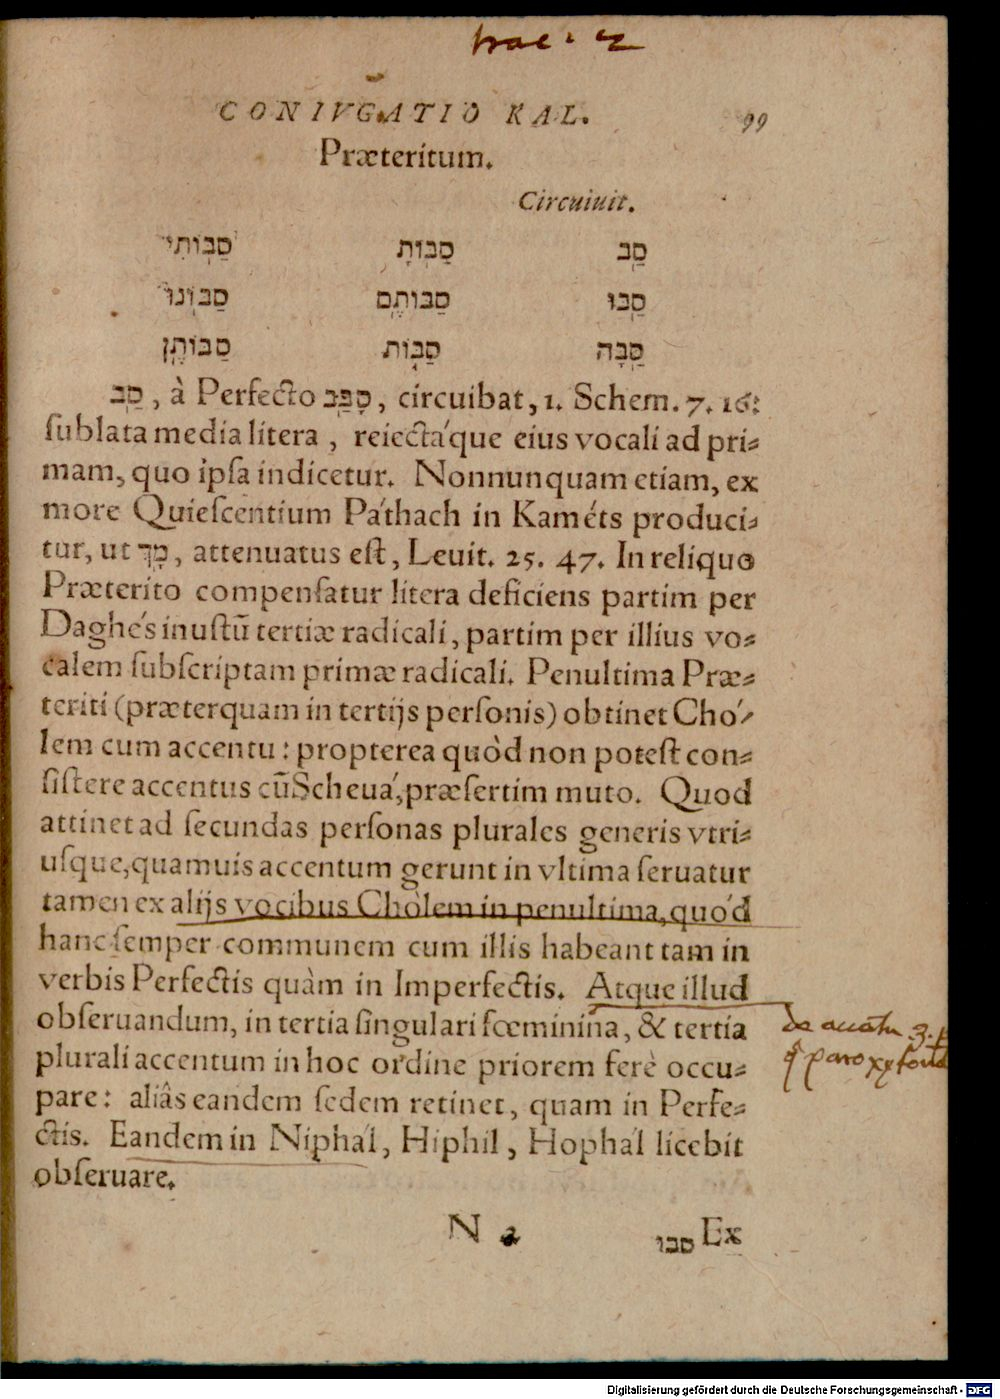 CONIVGATIO KAL. 99
Præteritum.
Circuiuit.
סַב סַבּוֹתָ סַבּוֹתִי
סַבּוּ סַבּוֹתֶם סַבּוֹנוּ
סַבָּה סַבּוֹת סַבּוֹתֶן
סַב, à Perfecto סָבַב, circuibat, 1. Schem. 7. 16:
ſublata media litera, reiectáque eius vocali ad pri-
mam, quo ipſa indicetur. Nonnunquam etiam, ex
more Quieſcentium Páthach in Kaméts produci-
tur, ut מָךְ, attenuatus eſt, Leuit. 25. 47. In reliquo
Præterito compenſatur litera deficiens partim per
Daghés inuſtū tertiæ radicali, partim per illius vo-
calem ſubſcriptam primæ radicali. Penultima Præ-
teriti (præterquam in tertijs perſonis) obtinet Chó-
lem cum accentu: propterea quòd non poteſt con-
ſiſtere accentus cū Scheuá, præſertim muto. Quod
attinet ad ſecundas perſonas plurales generis vtri-
uſque, quamuis accentum gerunt in vltima ſeruatur
tamen ex alijs vocibus Chòlem in penultima, quód
hanc ſemper communem cum illis habeant tam in
verbis Perfectis quàm in Imperfectis. Atque illud
obſeruandum, in tertia ſingulari fœminina, & tertia
plurali accentum in hoc ordine priorem ferè occu-
pare: aliâs eandem ſedem retinet, quam in Perfe-
ctis. Eandem in Niphál, Hiphil, Hophál licebit
obſeruare.
N 2 סבו Ex
Digitalisierung gefördert durch die Deutsche Forschungsgemeinschaft - DFG